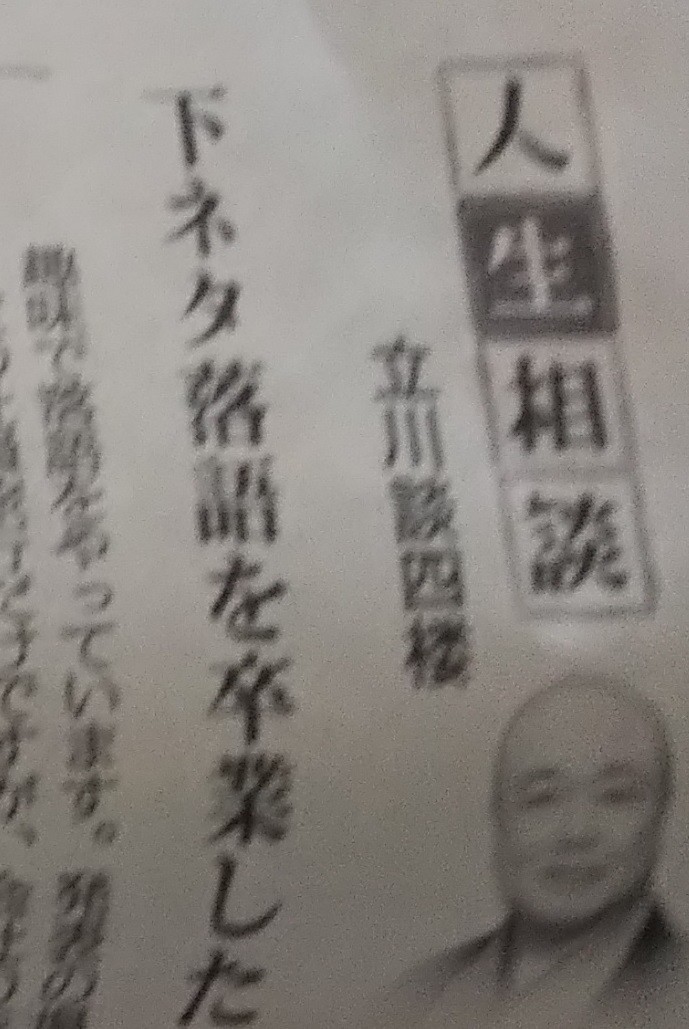 人生相談
立川談四楼
下ネタ落語を卒業した
趣味で落語をやっています。発表の